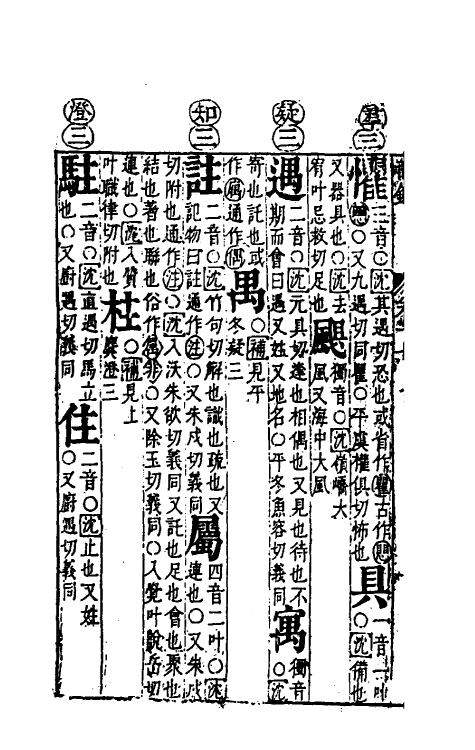 羣三
懼三音○沈其遇切恐也或省作瞿古作
愳○又九遇切同瞿○平虞權俱切怖也
具一音一叶
○沈備也
又器具也○沈去
宥叶忌救切足也
颶獨音○沈嶺嶠大
風又海中大風
疑三
遇二音○沈元具切逢也相偶也又見也待也不
期而會曰遇又姓又地名○平冬魚容切義同
寓獨音
○沈
寄也託也或
作庽通作偶
禺○補見平
冬疑三
知三
註二音○沈竹句切解也識也疏也又
記物曰註通作注○又朱戍切義同
屬四音二叶○沈
連也○又朱戍
切附也通作注○沈入沃朱欲切義同又託也足也會也聚也
結也著也聯也俗作属非○又除玉切義同○入覺叶說岳切
連也○沈入質
叶職律切附也
柱○補見上
麌澄三
澄三
駐二音○沈直遇切馬立
也○又廚遇切義同
住二音○沈止也又姓
○又廚遇切義同